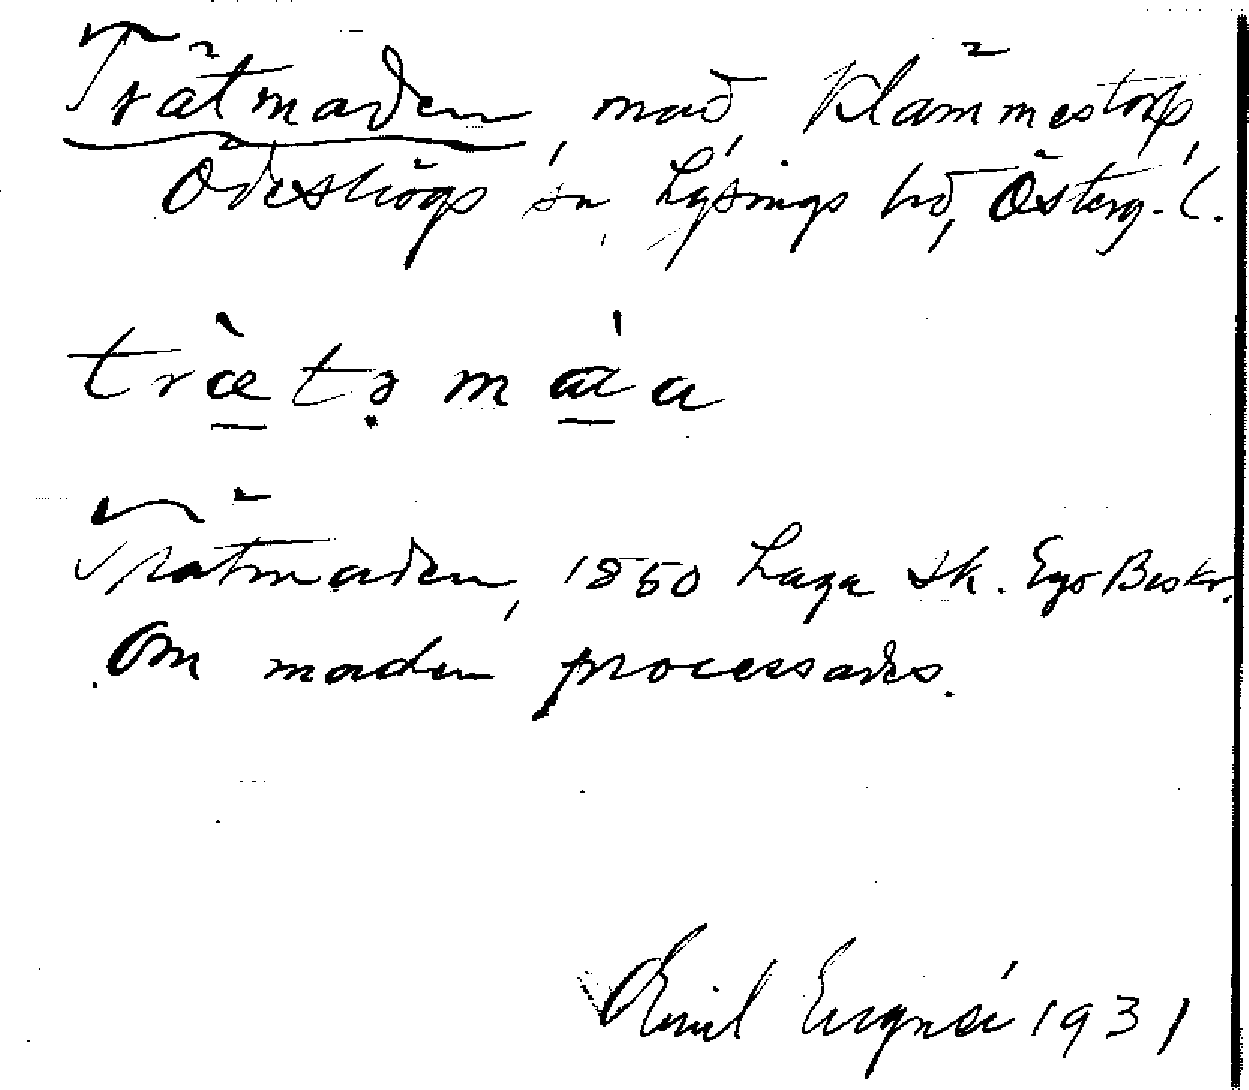 Trätmaden, mad, Klämmestorp,
Ödeshögs sn, Lysings hd, Österg. l.
trætǝ mɑ́a
Trätmaden, 1850 Laga Sk. Ego Beskr.
Om maden processades.
Emil 1931